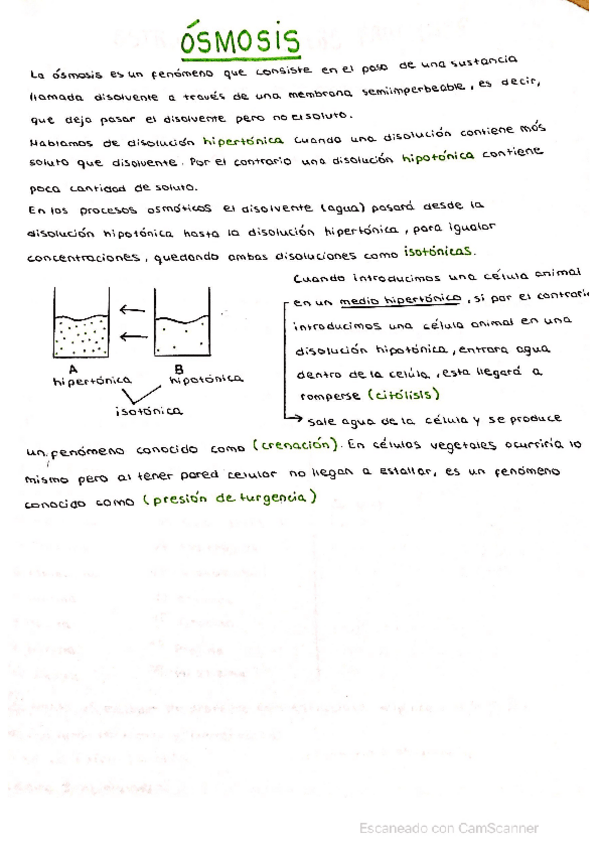 ÓSMOSIS
La ósmosis es un fenómeno que consiste en el paso de una sustancia
llamada disolvente a través de una membrana semiimperbeable, es decir,
que deja pasar el disolvente pero no el soluto.
Hablamos de disolución hipertónica cuando una disolución contiene más
soluto que disolvente. Por el contrario una disolución hipotónica contiene
poca cantidad de soluto.
En los procesos osmóticos el disolvente (agua) pasará desde la
disolución hipotónica hasta la disolución hipertónica, para igualar
concentraciones, quedando ambas disoluciones como isotónicas.
A
hipertónica
B
hipotónica
isotónica
Cuando introducimos una célula animal
en un medio hipertónico, si por el contrario
introducimos una célula animal en una
disolución hipotónica, entrara agua
dentro de la celúla, esta llegará a
romperse (citólisis)
sale agua de la célula y se produce
un fenómeno conocido como (crenación). En células vegetales ocurriría lo
mismo pero al tener pared celular no llegan a estallar, es un fenómeno
conocido como (presión de turgencia)
Escaneado con CamScanner